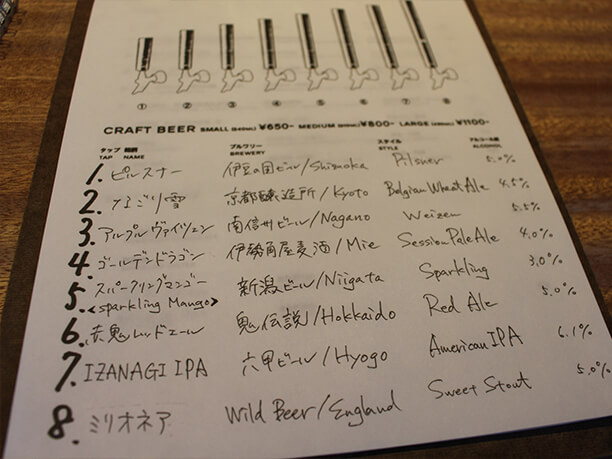 ① ② ③ ④ ⑤ ⑥ ⑦ ⑧
CRAFT BEER SMALL ¥650- MEDIUM ¥800- LARGE ¥1100-
タップ 銘柄 ブルワリー スタイル アルコール度
TAP NAME BREWERY STYLE ALCOHOL
1. ピルスナー 伊豆の国ビール/Shizuoka Pilsner 5.0%
2. なごり雪 京都醸造所/Kyoto Belgian Wheat Ale 4.5%
3. アルプルヴァイツェン 南信州ビール/Nagano Weizen 5.5%
4. ゴールデンドラゴン 伊勢角屋麦酒/Mie Session Pale Ale 4.0%
5. スパークリングマンゴー 新潟ビール/Niigata Sparkling 3.0%
<sparkling Mango>
6. 赤鬼レッドエール 鬼伝説/Hokkaido Red Ale 5.0%
7. IZANAGI IPA 六甲ビール/Hyogo American IPA 6.1%
8. ミリオネア Wild Beer/England Sweet Stout 5.0%